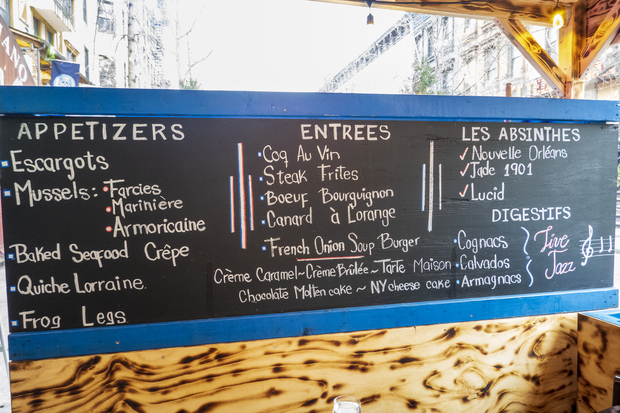 APPETIZERS
Escargots
Mussels: Farcies
Marinière
Armoricaine
Baked Seafood Crêpe
Quiche Lorraine
Frog Legs
ENTREES
Coq Au Vin
Steak Frites
Boeuf Bourguignon
Canard à Lorange
French Onion Soup Burger
Crème Caramel~Crème Brûlée~Tarte Maison
Chocolate Molten cake ~ NY cheese cake
LES ABSINTHES
Nouvelle Orléans
Jade 1901
Lucid
DIGESTIFS
Cognacs
Calvados
Armagnacs
Live
Jazz